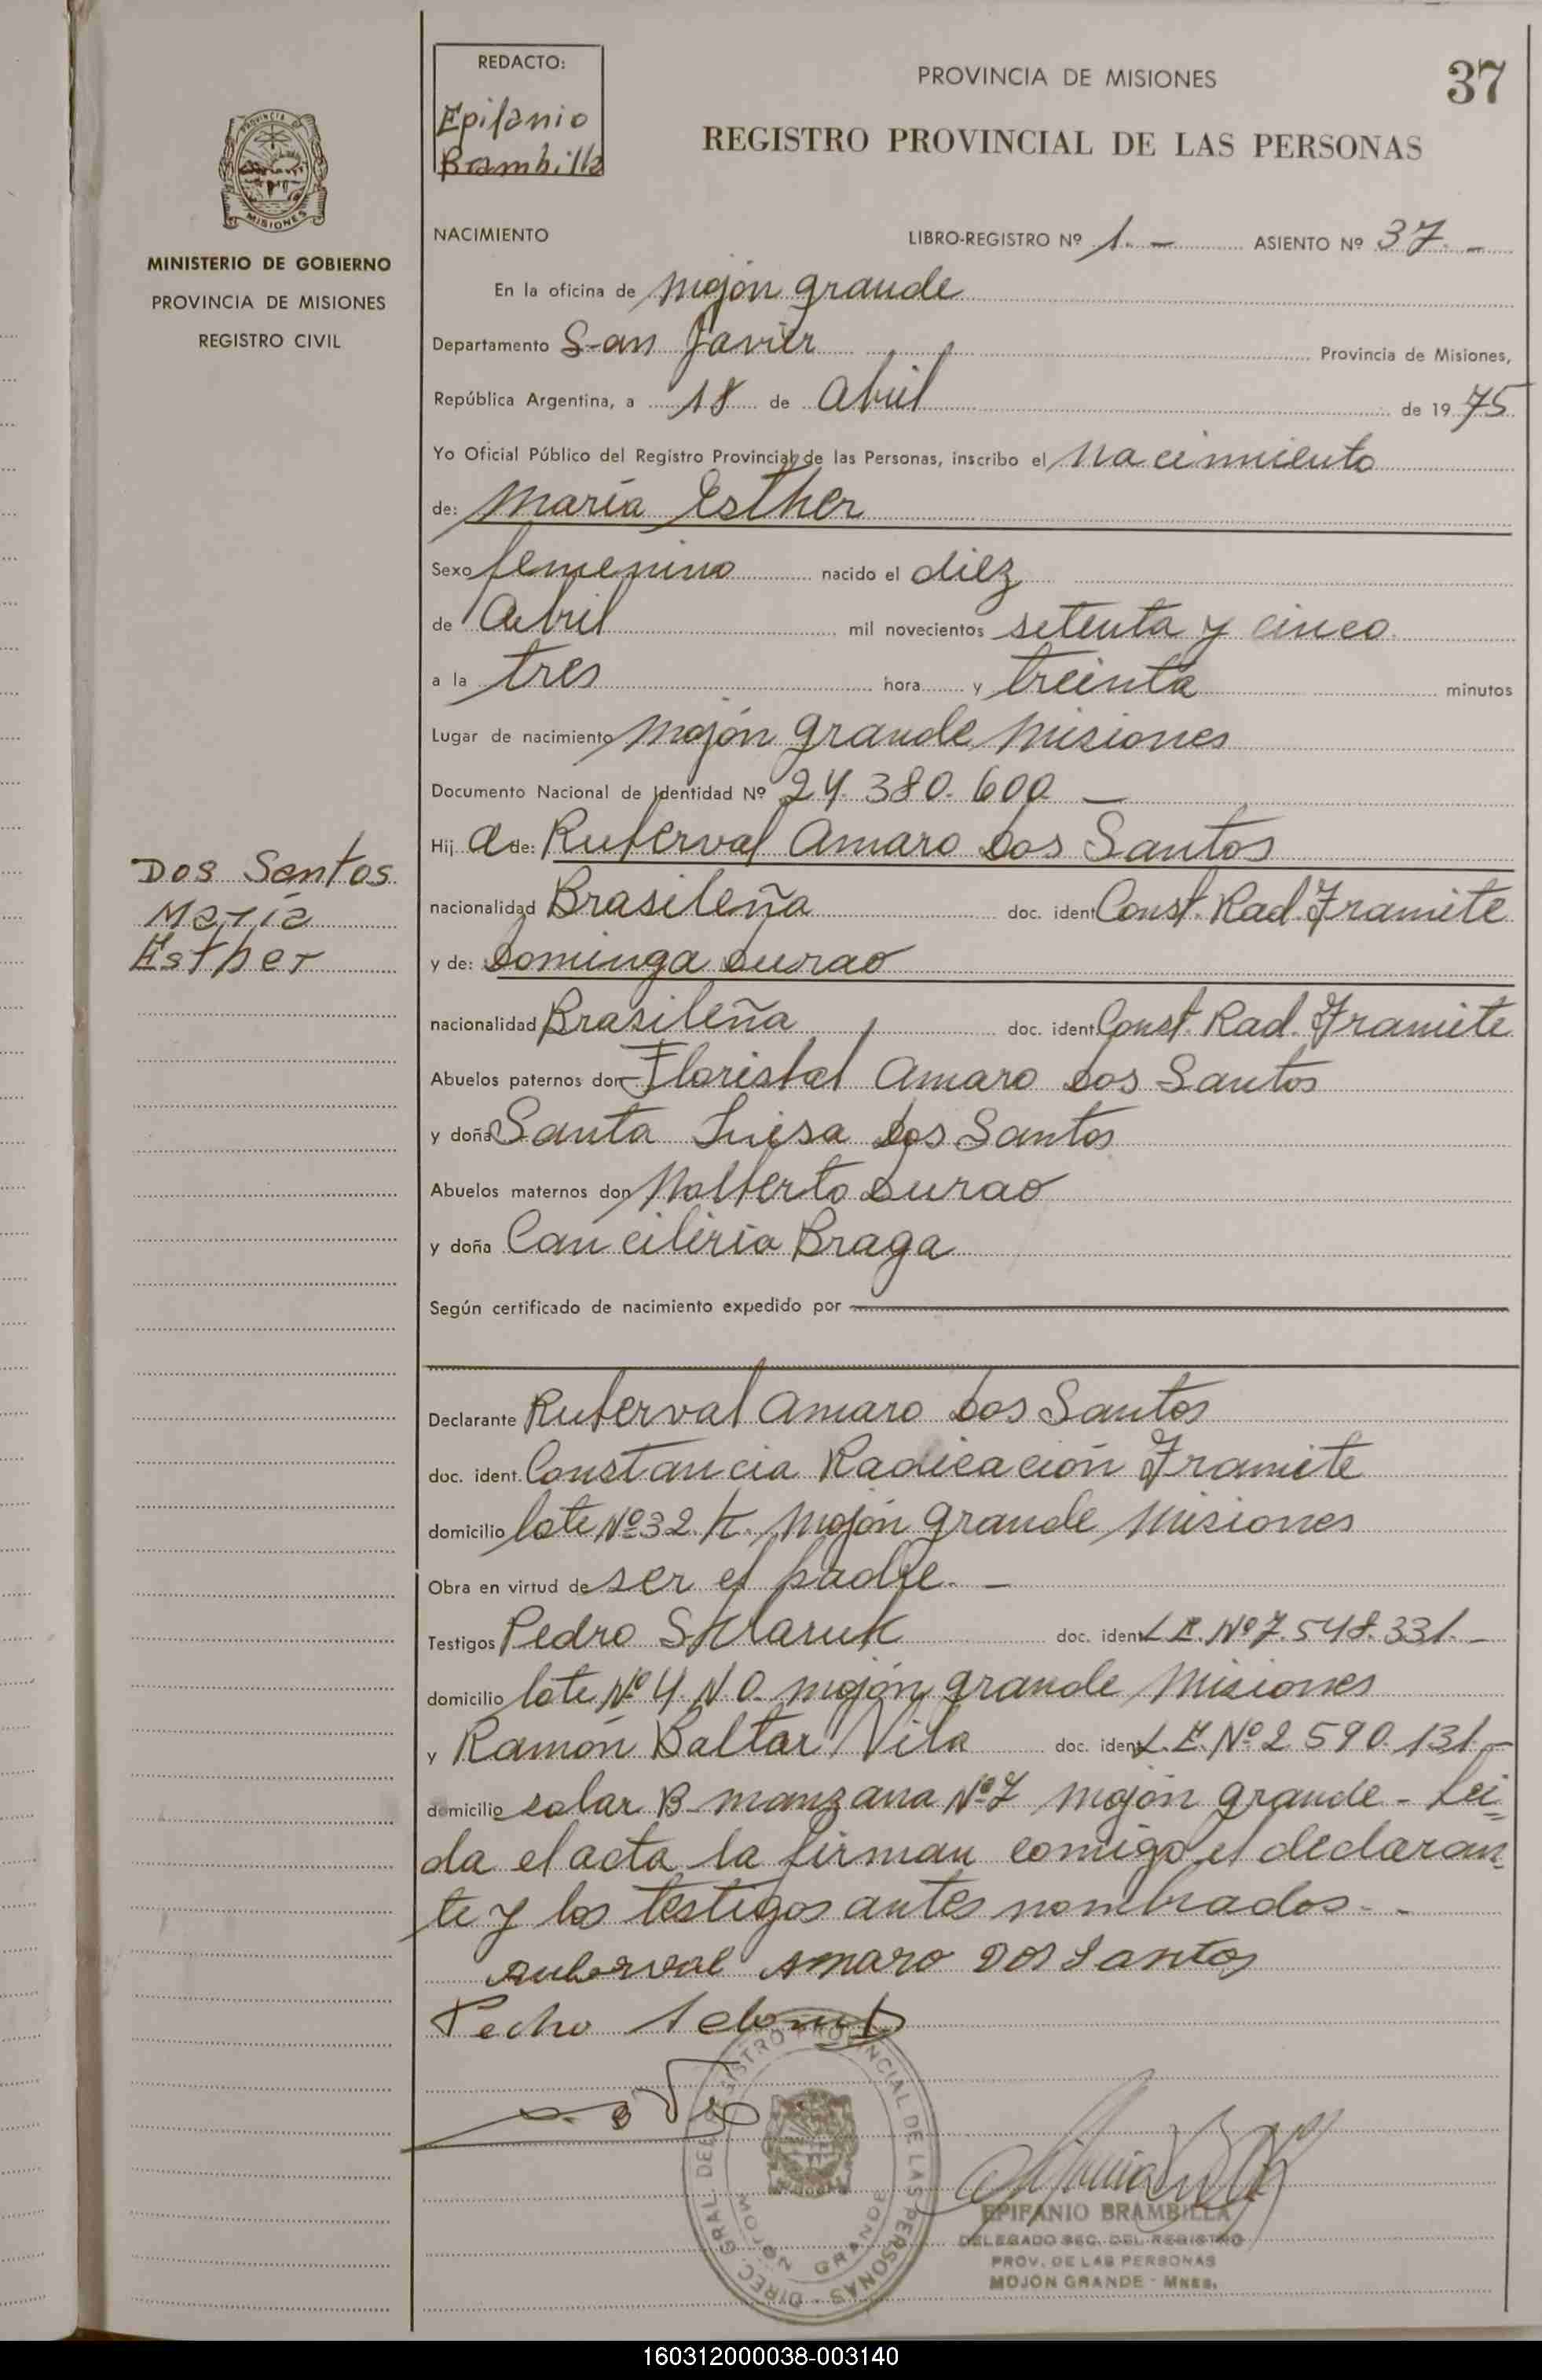 REDACTO:
Epifanio
Brambilla
PROVINCIA DE MISIONES
37
REGISTRO PROVINCIAL DE LAS PERSONAS
PROVINCIA DE
MISIONES
MINISTERIO DE GOBIERNO
PROVINCIA DE MISIONES
REGISTRO CIVIL
NACIMIENTO
LIBRO-REGISTRO Nº 1.- ASIENTO Nº 37.-
En la oficina de Mojón grande
Departamento San Javier Provincia de Misiones,
República Argentina, a 18 de Abril de 1975
Yo Oficial Público del Registro Provincial de las Personas, inscribo el Nacimiento
de: María Esther
Sexo femenino nacido el diez
de Abril mil novecientos setenta y cinco
a la tres hora y treinta minutos
Lugar de nacimiento Mojón grande Misiones
Documento Nacional de Identidad Nº 24.380.600 -
Hij a de: Ruberval Amaro Dos Santos
nacionalidad Brasileña doc. ident Const. Rad. Tramite
y de: Dominga Durao
nacionalidad Brasileña doc. ident. Const. Rad. Tramite
Dos Santos
María
Esther
Abuelos paternos don Floristal Amaro Dos Santos
y doña Santa Luisa Dos Santos
Abuelos maternos don Nolberto Durao
y doña Braga
Según certificado de nacimiento expedido por
Declarante Ruberval Amaro Dos Santos
doc. ident. Constancia Radicación Tramite
domicilio lote Nº 32. K. Mojón grande Misiones
Obra en virtud de ser el padre. -
Testigos Pedro Sklaruk doc. ident L.E. Nº 7.548.331.-
domicilio lote Nº 4. N.O. Mojón grande Misiones
y Ramón Baltar Vila doc. ident L.E. Nº 2.590.131-
domicilio solar B manzana Nº 7 Mojón grande - Lei
da el acta la firman comigo el declaran
te y los testigos antes nombrados. -
Ruberval Amaro Dos Santos
Pedro
DIREC. GRAL. DEL REGISTRO PROVINCIAL DE LAS PERSONAS
MOJON GRANDE
EPIFANIO BRAMBILLA
DELEGADO SEC. DEL REGISTRO
PROV. DE LAS PERSONAS
MOJON GRANDE - MNES.
160312000038-003140